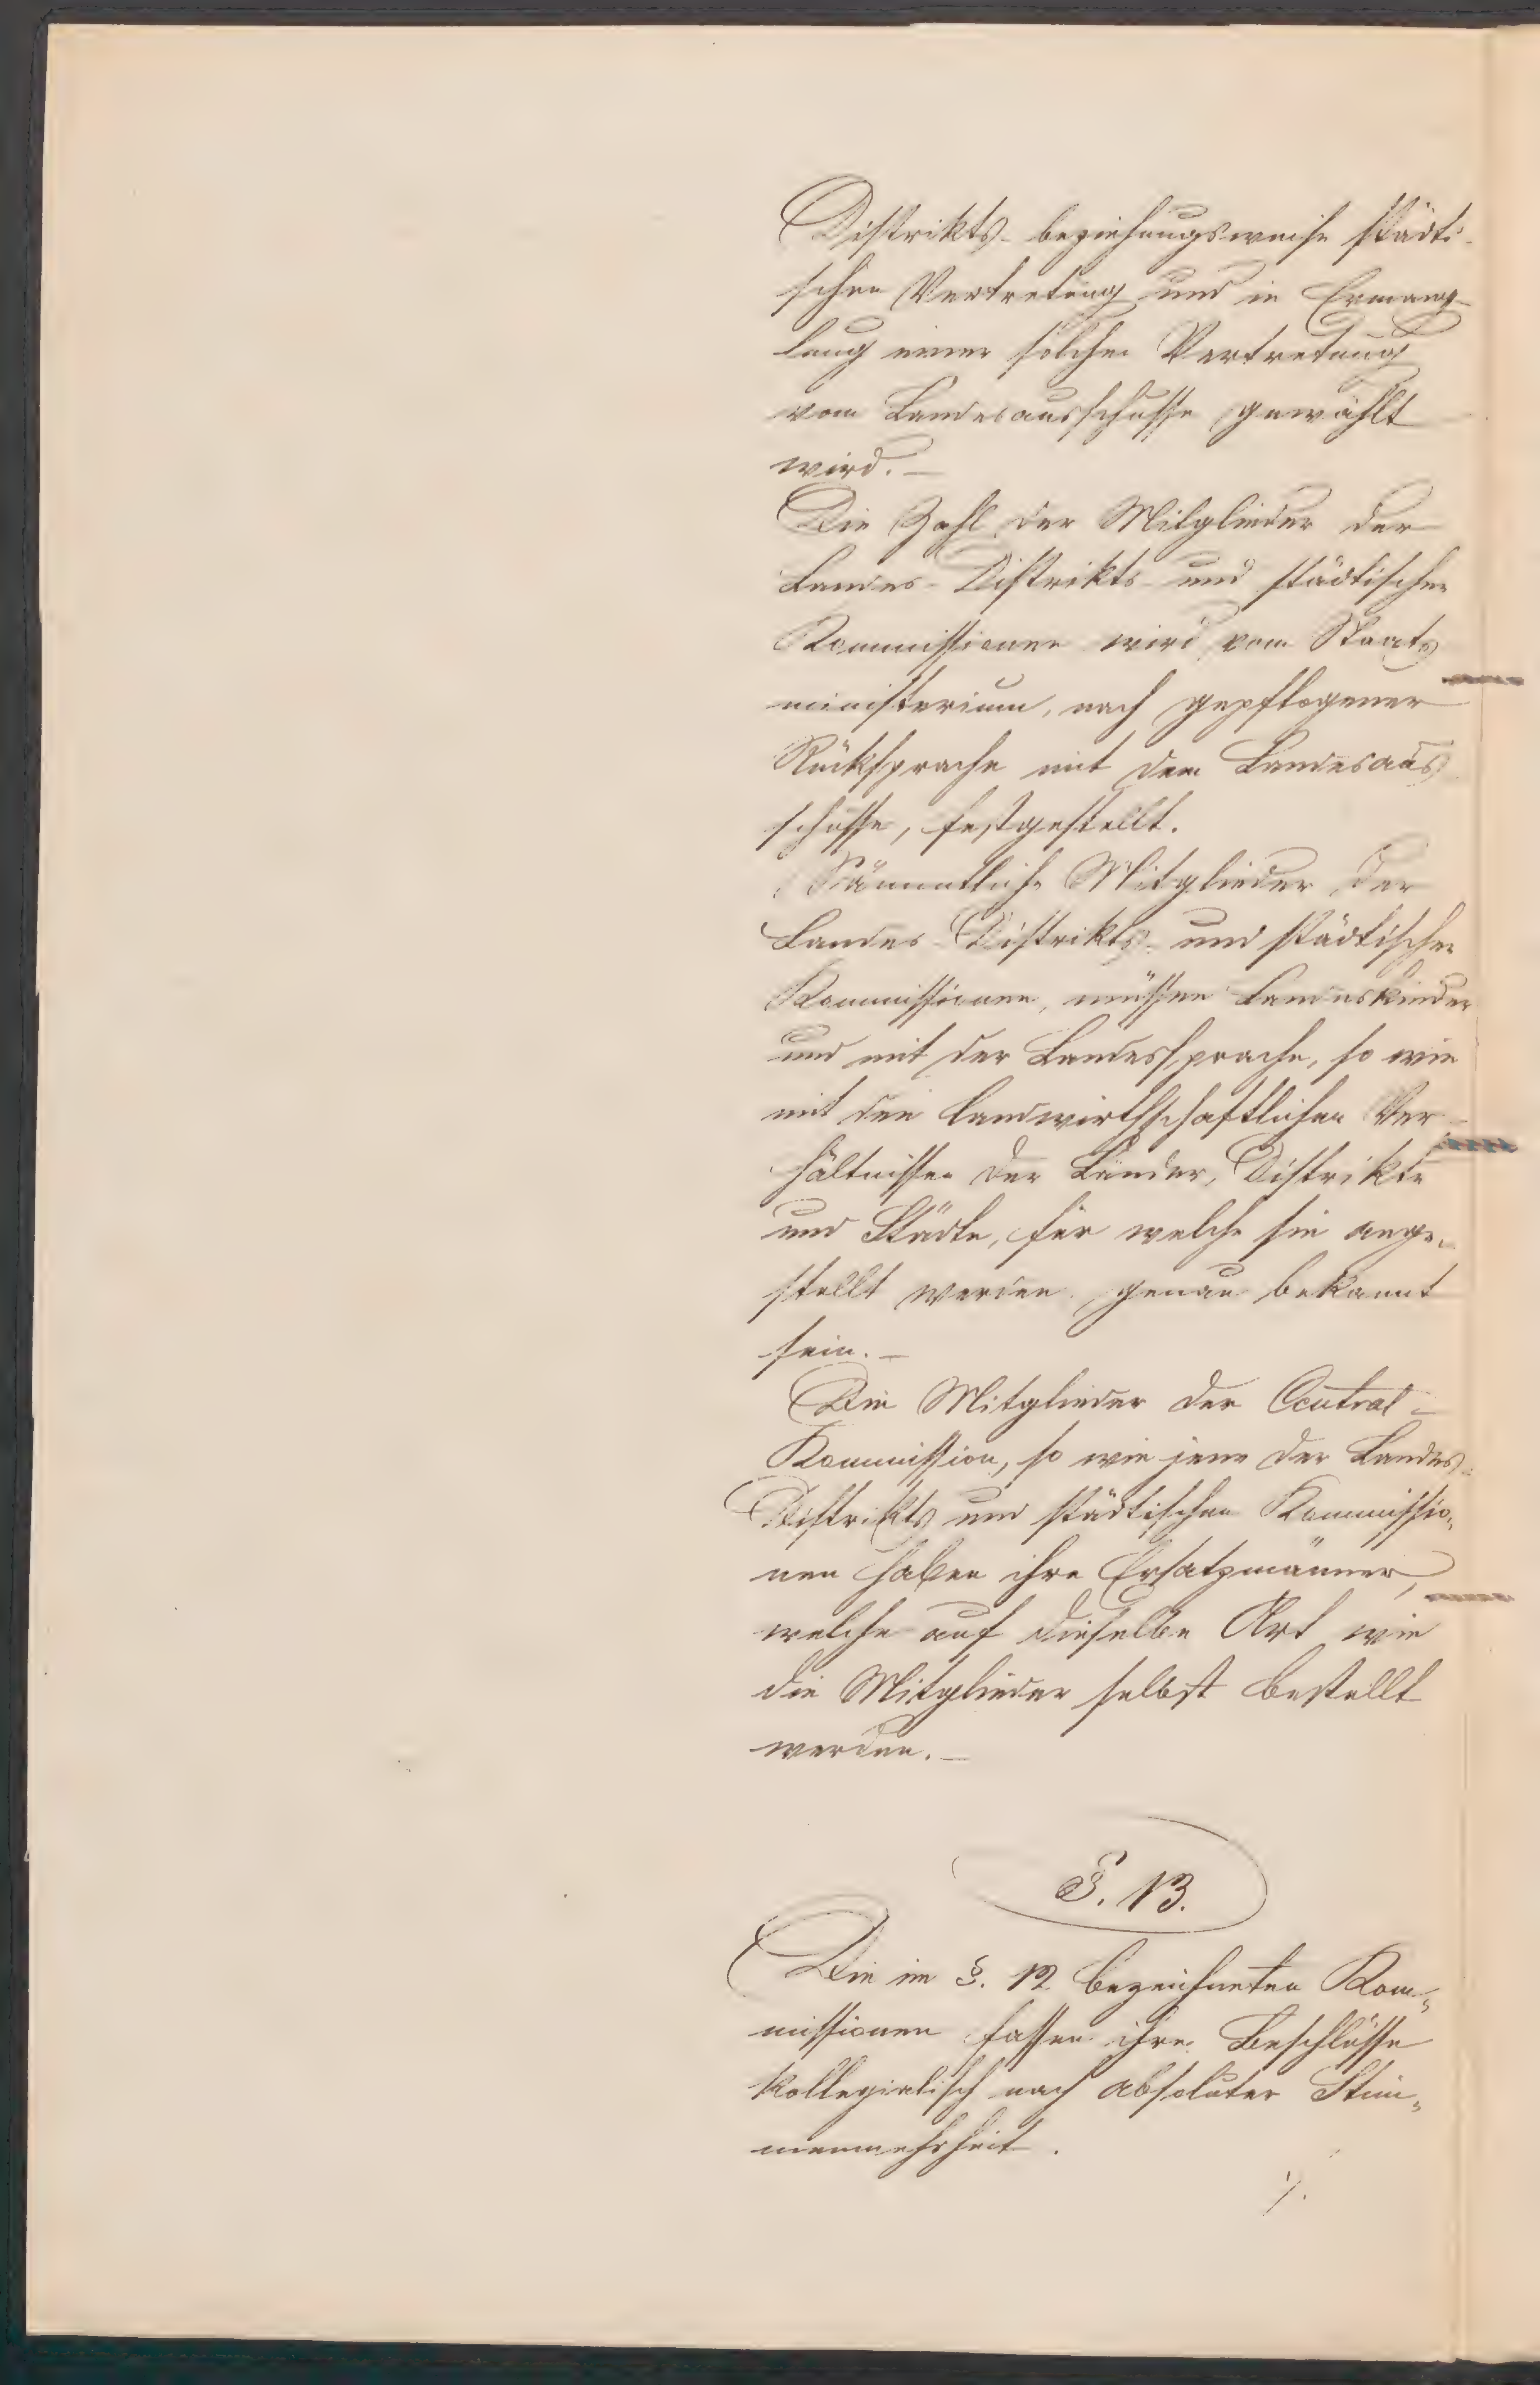 Distrikts- beziehungsweise städti-
schen Vertretung und in Ermang-
lung einer solchen Vertretung
vom Landesausschusse gewählt
wird. —
Die Zahl der Mitglieder der
Landes- Distrikts- und städtischen
Kommissionen wird vom Staats
ministerium, nach gepflogener
Rücksprache mit dem Landesaus
schusse, festgestellt.
Sämmtliche Mitglieder der
Landes- Distrikts- und städtischen
Kommissionen, müssen Landeskinder
und mit der Landessprache, so wie
mit den landwirthschaftlichen Ver-
hältnissen der Länder, Distrikte
und Städte, für welche sie ange-
stellt werden genau bekannt
sein. —
Die Mitglieder der Central-
Kommission, so wie jene der Landes-
Distrikts und städtischen Kommissio-
nen haben ihre Ersatzmänner,
welche auf dieselbe Art wie
die Mitglieder selbst bestellt
werden. —
§. 13.
Die im §. 12 bezeichneten Kom-
missionen fassen ihre Beschlüsse
kollegialisch nach absoluter Stim-
menmehrheit.
./.